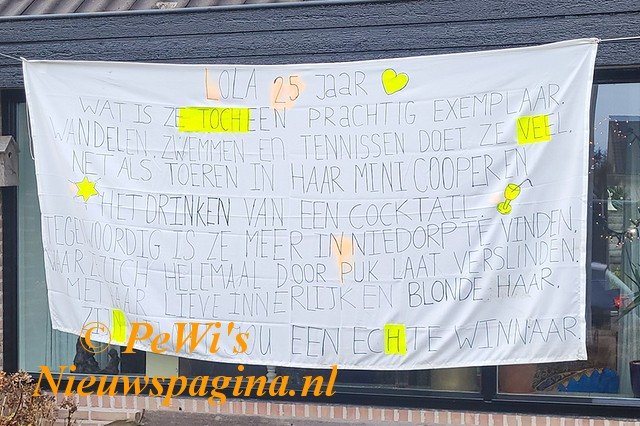 LOLA 25 jaar
WAT IS ZE TOCH EEN PRACHTIG EXEMPLAAR.
WANDELEN, ZWEMMEN EN TENNISSEN DOET ZE VEEL.
NET ALS TOEREN IN HAAR MINI COOPER EN
HET DRINKEN VAN EEN COCKTAIL.
TEGENWOORDIG IS ZE MEER IN NIEDORP TE VINDEN,
WAAR ZICH HELEMAAL DOOR PUK LAAT VERSLINDEN.
MET HAR LIEVE INNERLIJK EN BLONDE HAAR.
OU EEN ECHTE WINNAAR.
© PeWi's
Nieuwspagina.nl